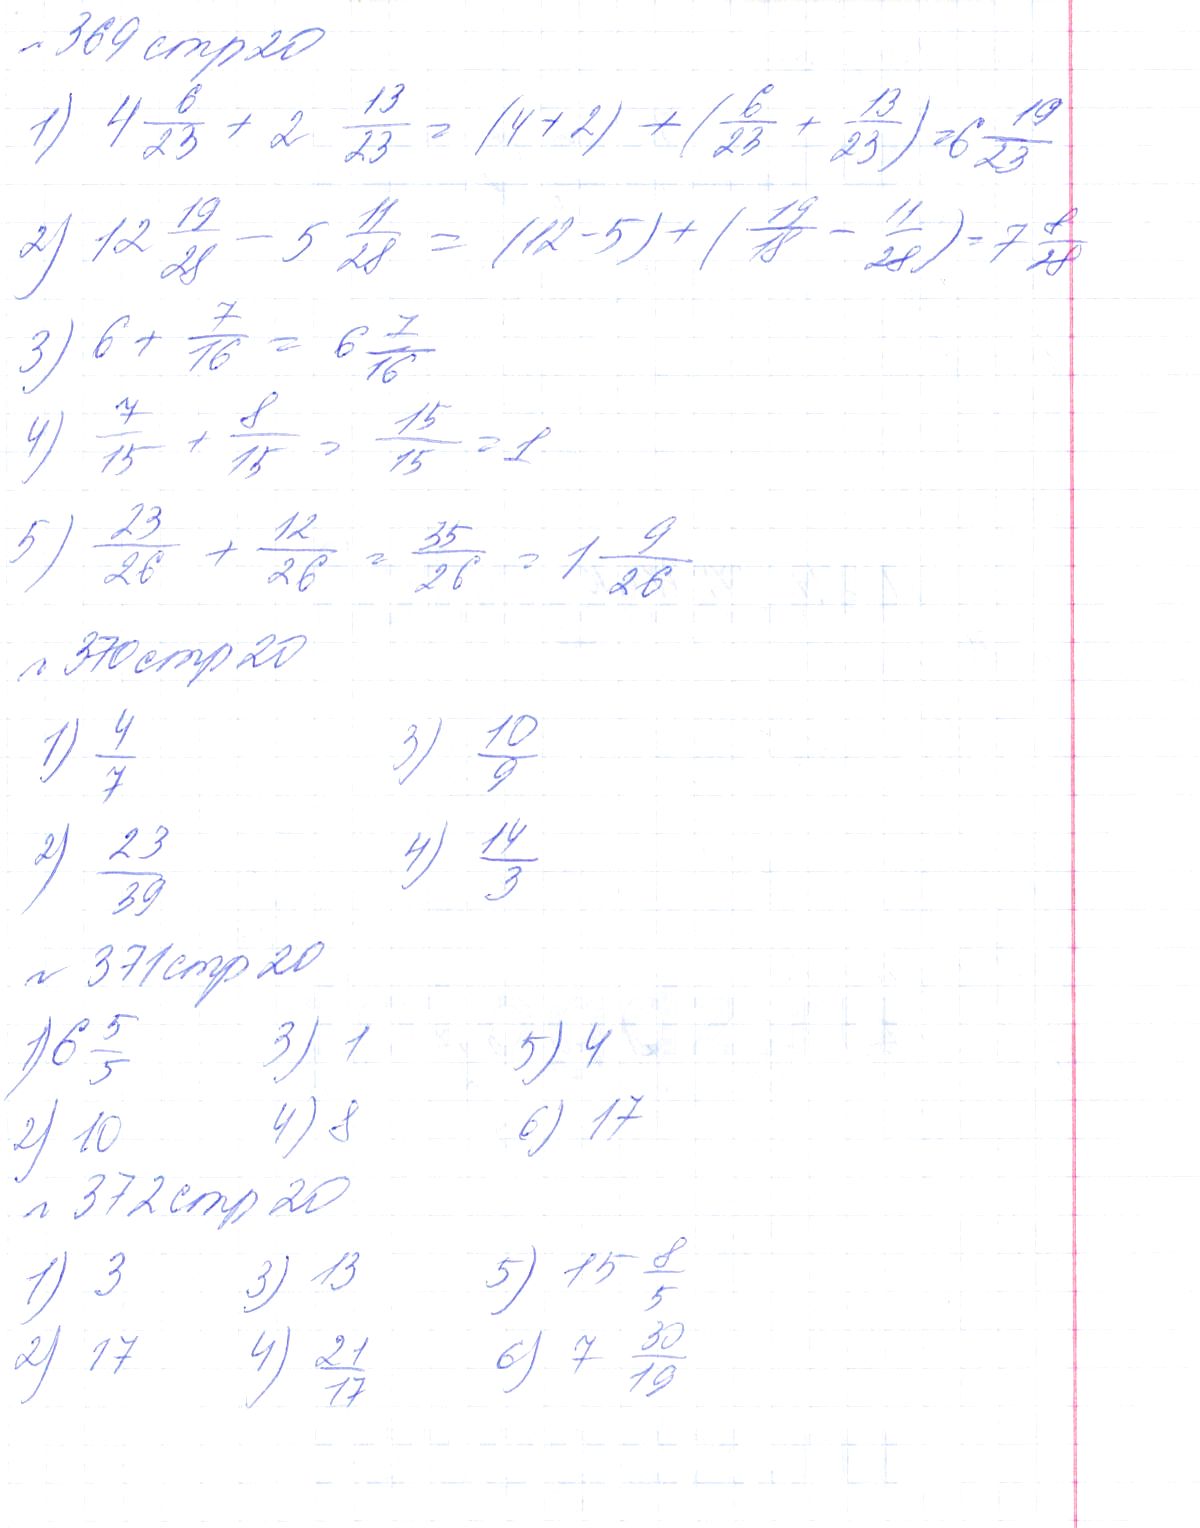 ~ 369 стр 20
1) 4 6/23 + 2 13/23 = (4+2) + (6/23 + 13/23) = 6 19/23
2) 12 19/28 - 5 11/28 = (12-5) + (19/18 - 11/28) = 7 8/28
3) 6 + 7/16 = 6 7/16
4) 7/15 + 8/15 = 15/15 = 1
5) 23/26 + 12/26 = 35/26 = 1 9/26
~ 370 стр 20
1) 4/7 3) 10/9
2) 23/39 4) 14/3
~ 371 стр 20
1) 6 5/5 3) 1 5) 4
2) 10 4) 8 6) 17
~ 372 стр 20
1) 3 3) 13 5) 15 8/5
2) 17 4) 21/17 6) 7 30/19